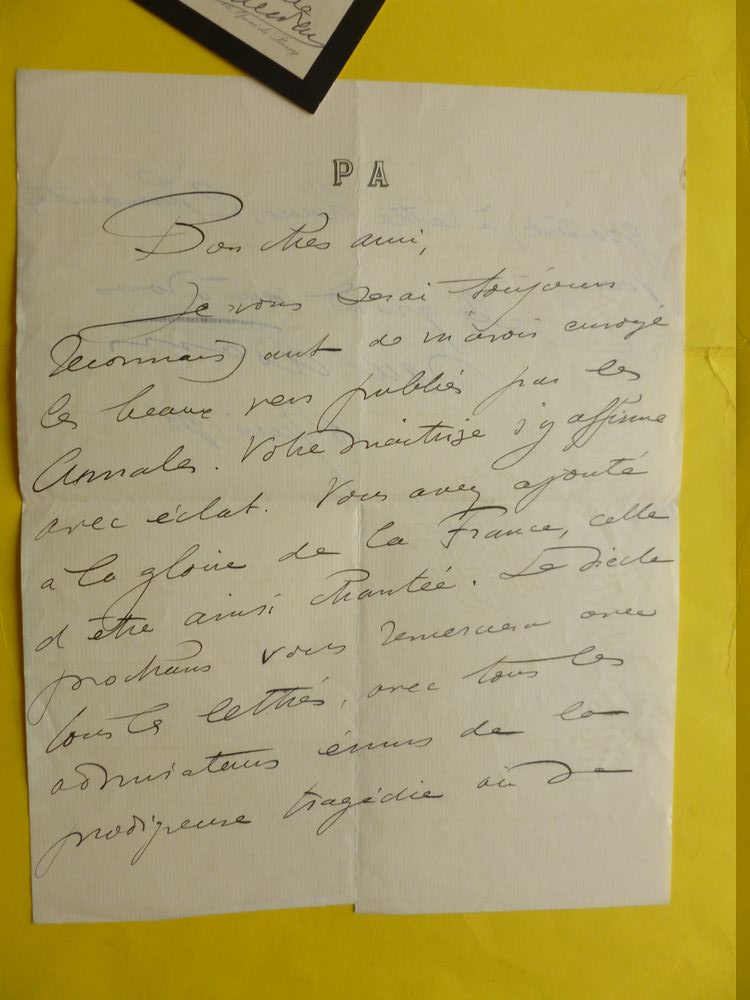 P A
Bon cher ami,
Je vous serai toujours
reconnaissant de m'avoir envoyé
les beaux vers publiés par les
Annales. Votre maîtrise s'y affirme
avec éclat. Vous avez ajouté
à la gloire de la France, celle
d'être ainsi chantée. Le siècle
prochain vous remerciera avec
tous les lettrés, avec tous les
admirateurs émus de la
prodigieuse tragédie où se